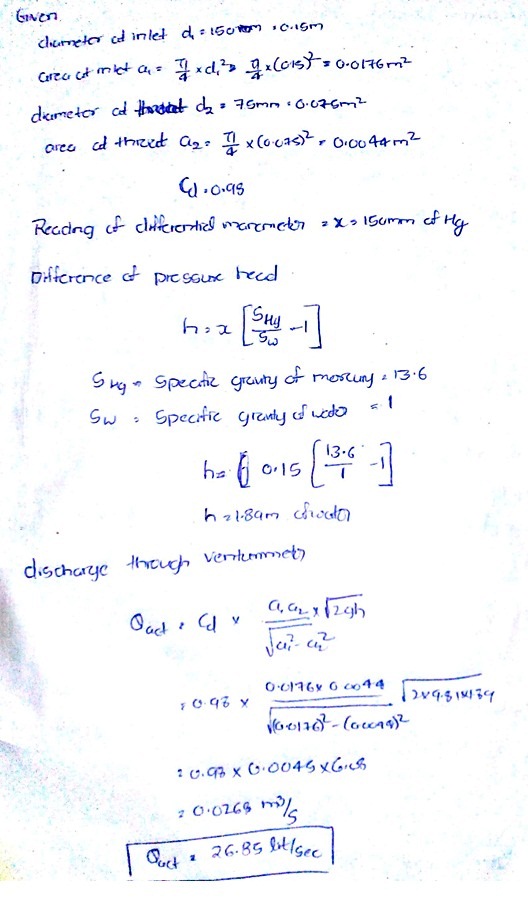 Given
diameter at inlet d₁ = 150mm = 0.15m
area at inlet a₁ = π/4 × d₁² = π/4 × (0.15)² = 0.0176m²
diameter at throat d₂ = 75mm = 0.075m²
area at throat a₂ = π/4 × (0.075)² = 0.0044m²
Cd = 0.98
Reading of differential manometer = x = 150mm of Hg
Difference of pressure head
h = x [S Hg / Sw - 1]
S Hg = Specific gravity of mercury = 13.6
Sw = Specific gravity of water = 1
h = 0.15 [13.6/1 - 1]
h = 1.89m of water
discharge through venturimeter
Qact = Cd × a₁ a₂ × √2gh / √a₁² - a₂²
= 0.98 × 0.0176 × 0.0044 / √(0.0176)² - (0.0044)² √2×9.81×1.89
= 0.98 × 0.0045 × 6.08
= 0.0268 m³/s
Qact = 26.85 lit/sec